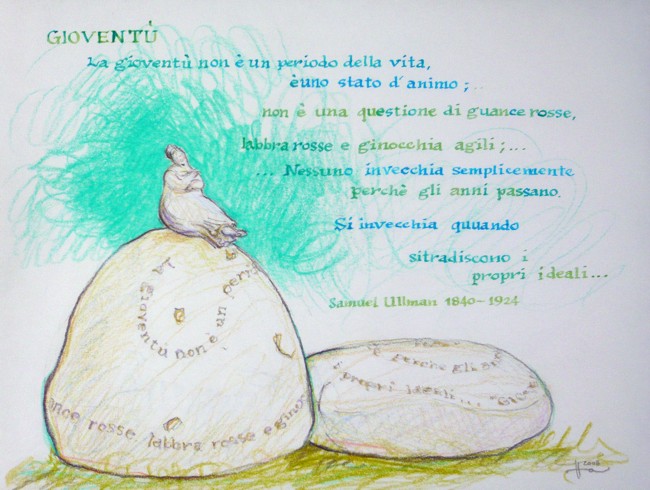 GIOVENTÙ
La gioventù non è un periodo della vita,
è uno stato d'animo;...
non è una questione di guance rosse,
labbra rosse e ginocchia agili;...
... Nessuno invecchia semplicemente
perchè gli anni passano.
Si invecchia quuando
si tradiscono i
propri ideali...
Samuel Ullman 1840-1924
La gioventù non è un perio
ance rosse labbra rosse e ginoc
perche gli an
propri ideali...
2006